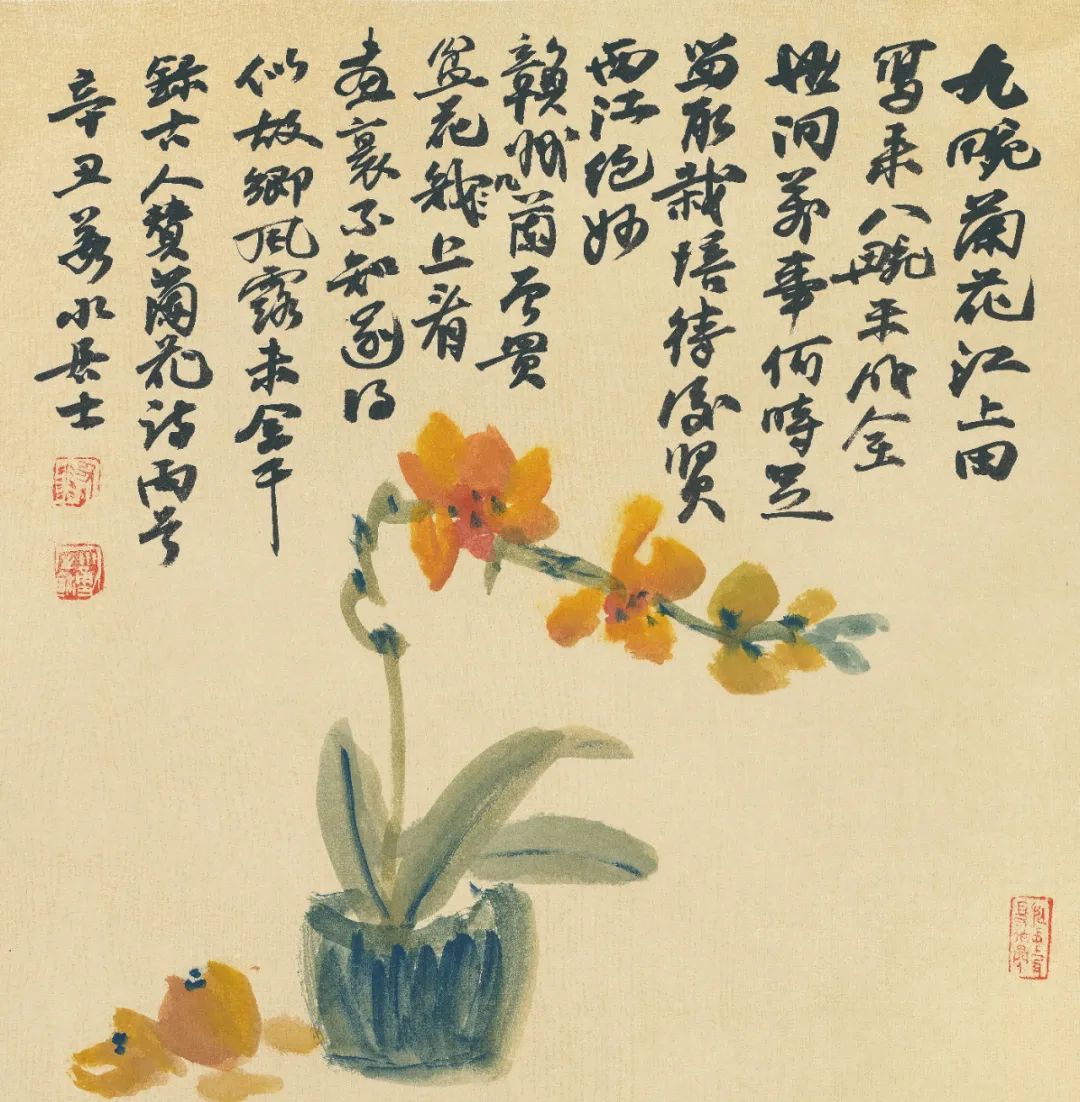 九畹蘭花江上田
寫來八畹未成全
世间萬事何時足
留取栽培待後賢
西江絕妙
贛州蘭曾買
盆花几缽上看
畫裏不知得
似故鄉風露未全干
錄古人贊蘭花詩兩首
辛丑若水居士